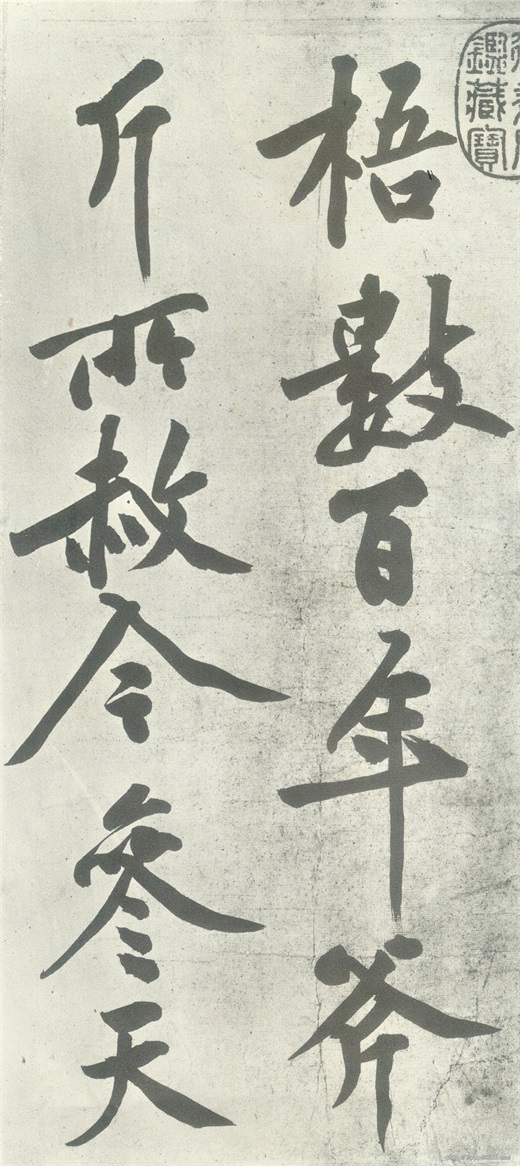 梧數百年斧
斤所赦今參天
鑑藏寶